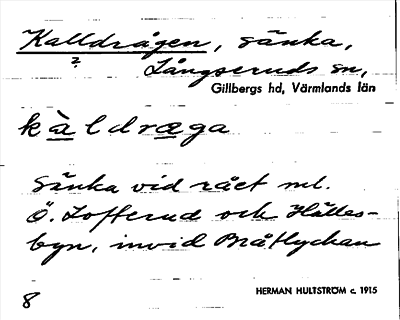 Kalldrågen, sänka,
?
Långseruds sn,
Gillbergs hd, Värmlands län
kàldræga
Sänka vid rået ml.
Ö. Lofterud och Hälles-
byn, invid Bråtlyckan
8
HERMAN HULTSTRÖM c. 1915